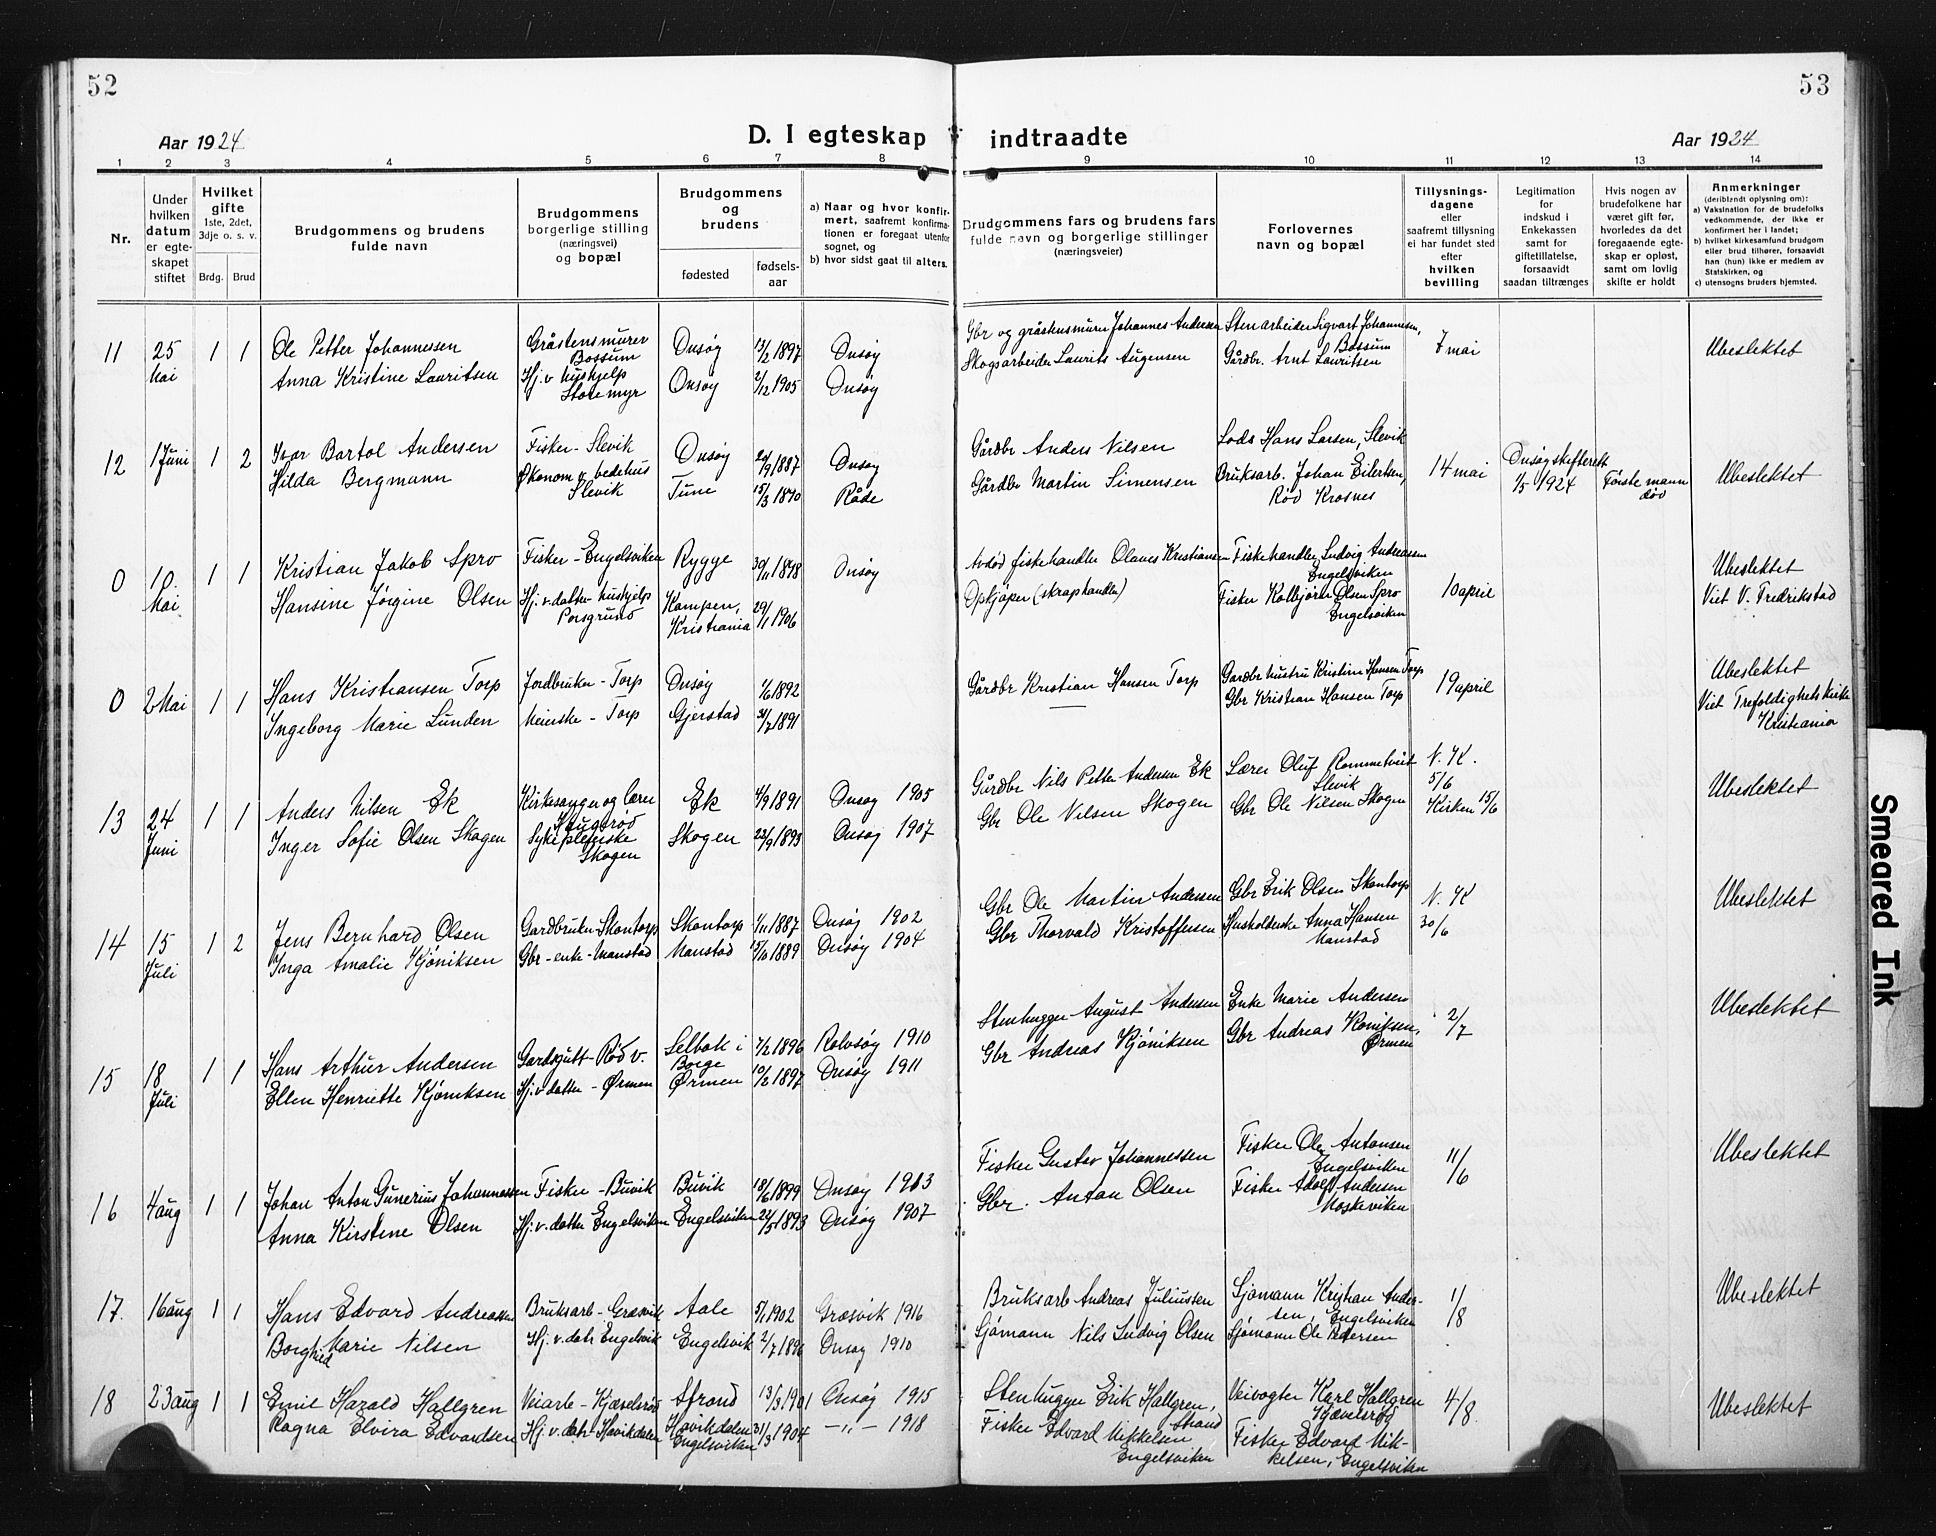 52
53
Aar 1924
D. I egteskap indtraadte
Aar 1924
1 2 3 4 5 6 7 8 9 10 11 12 13 14
Nr.
Under hvilken datum er egteskapet stiftet
Hvilket gifte 1ste, 2det, 3dje o. s. v.
Brdg. Brud
Brudgommens og brudens fulde navn
Brudgommens borgerlige stilling (næringsvei) og bopæl
Brudgommens og brudens
fødested
fødsels-aar
a) Naar og hvor konfirmert, saafremt konfirmationen er foregaat utenfor sognet, og
b) hvor sidst gaat til alters.
Brudgommens fars og brudens fars fulde navn og borgerlige stillinger (næringsveier)
Forlovernes navn og bopæl
Tillysnings-dagene eller saafremt tillysning ei har fundet sted efter hvilken bevilling
Legitimation for indskud i Enkekassen samt for giftetillatelse, forsaavidt saadan tiltrænges
Hvis nogen av brudefolkene har været gift før, hvorledes da det foregaaende egteskap er opløst, samt om lovlig skifte er holdt
Anmerkninger (deriblandt oplysning om):
a) Vaksination for de brudefolks vedkommende, der ikke er konfirmert her i landet;
b) hvilket kirkesamfund brudgom eller brud tilhører, forsaavidt han (hun) ikke er medlem av Statskirken, og
c) utensogns bruders hjemsted.
11 25 Mai 1 1
Ole Petter Johannessen Gråstensmurer Bossum Onsøy 13/2 1897 Onsøy
Anna Kristine Lauritsen Hj. v. hushjelp Storemyr Onsøy 2/12 1905 Onsøy
Gbr og gråstensmurer Johannes Andersen Stenarbeider Sigvart Johannessen, Bossum
Skogsarbeider Laurits Augensen Gårdbr. Arnt Lauritsen
7 mai
Ubeslektet
12 1 Juni 1 2
Ivar Bartol Andersen Fisker - Slevik Onsøy 29/9 1887 Onsøy
Hilda Bergmann Økonom v. bedehus Slevik Tune 15/3 1870 Råde
Gårdbr Anders Nilsen Lods Hans Larsen, Slevik
Gårdbr Martin Simensen Bruksarb. Johan Eilertsen, Rød Krosnes
14 mai
Onsøy skifterett 1/5 1924
Første mann død
Ubeslektet
0 10. Mai 1 1
Kristian Jakob Spro Fisker - Engelsviken Rygge 30/11 1898 Onsøy
Hansine Jørgine Olsen Hj. v. datter hushjelp Porsgrund Kampen, Kristiania 29/1 1906
Avdød fiskehandler Olaves Kristiansen Fiskehandler Ludvig Andreassen Engelsviken
Opkjøper (skraphandler) Fisker Kolbjørn Olsen Spro Engelsviken
10 april
Ubeslektet
Viet V. Fredrikstad
0 2 Mai 1 1
Hans Kristiansen Torp Jordbruker - Torp Onsøy 1/6 1892
Ingeborg Marie Lunden Meierske - Torp Gjerstad 31/7 1891
Gårdbr Kristian Hansen Torp Gårdbr hustru Kristine Hansen Torp
Gbr Kristian Hansen Torp
19 april
Ubeslektet
Viet Trefoldighetskirke Kristiania
13 24 Juni 1 1
Anders Nilsen Ek Kirkesanger og lærer Haugsrød Ek 4/9 1891 Onsøy 1905
Inger Sofie Olsen Skogen Sykepleierske Skogen Skogen 23/9 1893 Onsøy 1907
Gårdbr Nils Petter Andersen Ek Lærer Oluf Rommetveit Slevik
Gbr Ole Nilsen Skogen Gbr Ole Nilsen Skogen
N. K. 5/6
Kirken 15/6
Ubeslektet
14 15 Juli 1 2
Jens Bernhard Olsen Gardbruker - Skontorp Skontorp 1/11 1887 Onsøy 1902
Inga Amalie Kjøniksen Gbr - enke - Manstad Manstad 15/10 1889 Onsøy 1904
Gbr Ole Martin Andersen Gbr Erik Olsen Skontorp
Gbr Thorvald Kristoffersen Husholderske Anna Hansen Manstad
N. K 30/6
Ubeslektet
15 18 Juli 1 1
Hans Arthur Andersen Gardsgutt - Rød v. Selbak i Borge 7/2 1896 Rolvsøy 1910
Ellen Henriette Kjøniksen Hj. v. datter - Ørmen Ørmen 10/2 1897 Onsøy 1911
Stenhugger August Andersen Enke Marie Andersen
Gbr Andreas Kjøniksen Gbr Andreas Køniksen, Ørmen
2/7
Ubeslektet
16 4 aug 1 1
Johan Anton Gunerius Johannessen Fisker - Buvik Buvik 18/6 1899 Onsøy 1913
Anna Kirstine Olsen Hj. v. datter Engelsviken Engelsviken 22/5 1893 Onsøy 1907
Fisker Gustav Johannessen Fisker Ole Antonsen Engelsviken
Gbr. Anton Olsen Fisker Adolf Andersen Moskeviken
11/6
Ubeslektet
17. 16 aug 1 1
Hans Edvard Andreassen Bruksarb - Græsvik Aale 5/1 1902 Græsvik 1916
Borghild Marie Nilsen Hj. v. datr Engelsvik Engelsvik 2/7 1896 Onsøy 1910
Bruksarb Andreas Juliussen Sjømann Kristian Andersen, Engelsviken
Sjømann Nils Ludvig Olsen Sjømann Ole Petersen
1/8
Ubeslektet
18 23 aug 1 1
Emil Harald Hallgren Veiarb - Kjævelsrød Strand 13/3 1901 Onsøy 1915
Ragna Elvira Edvardsen Hj. v. datr - Havikdalen Havikdalen Engelsviken 31/3 1904 - " - 1918
Stenhugger Erik Hallgren, Strand Veivogter Karl Hallgren Kjævelsrød
Fisker Edvard Mikkelsen Engelsviken Fisker Edvard Mikkelsen, Engelsviken
4/8
Ubeslektet
Smeared Ink